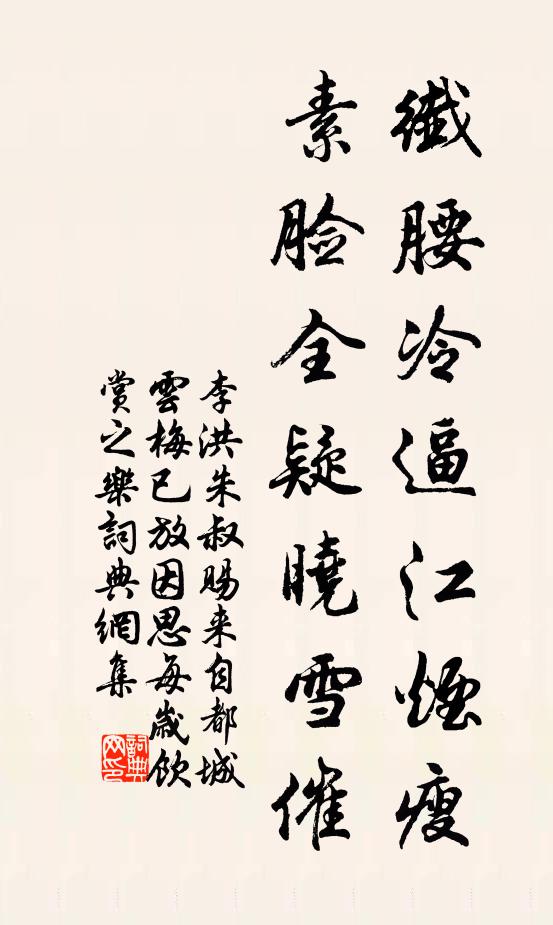 纖腰冷逼江煙瘦
素臉全疑曉雪催
李洪朱叔賜来自都城
雲梅已放因思每歲飲
賞之樂詞典網集
詞典网印